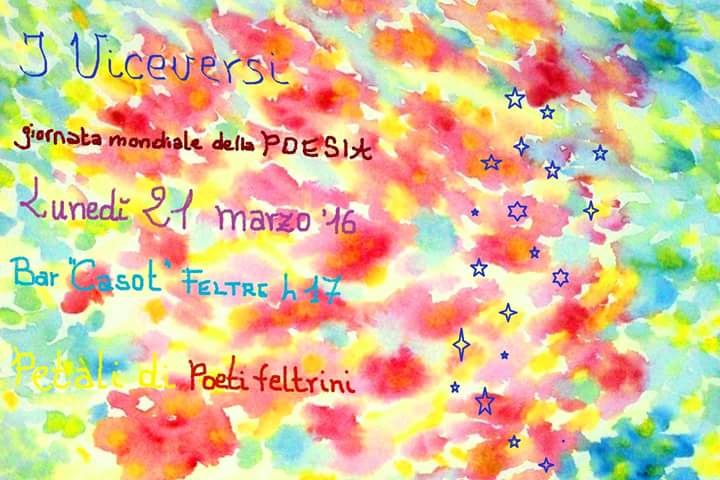 I Viceversi
giornata mondiale della POESIA
Lunedì 21 marzo '16
Bar "Casot" FELTRE h 17
Petali di Poeti feltrini